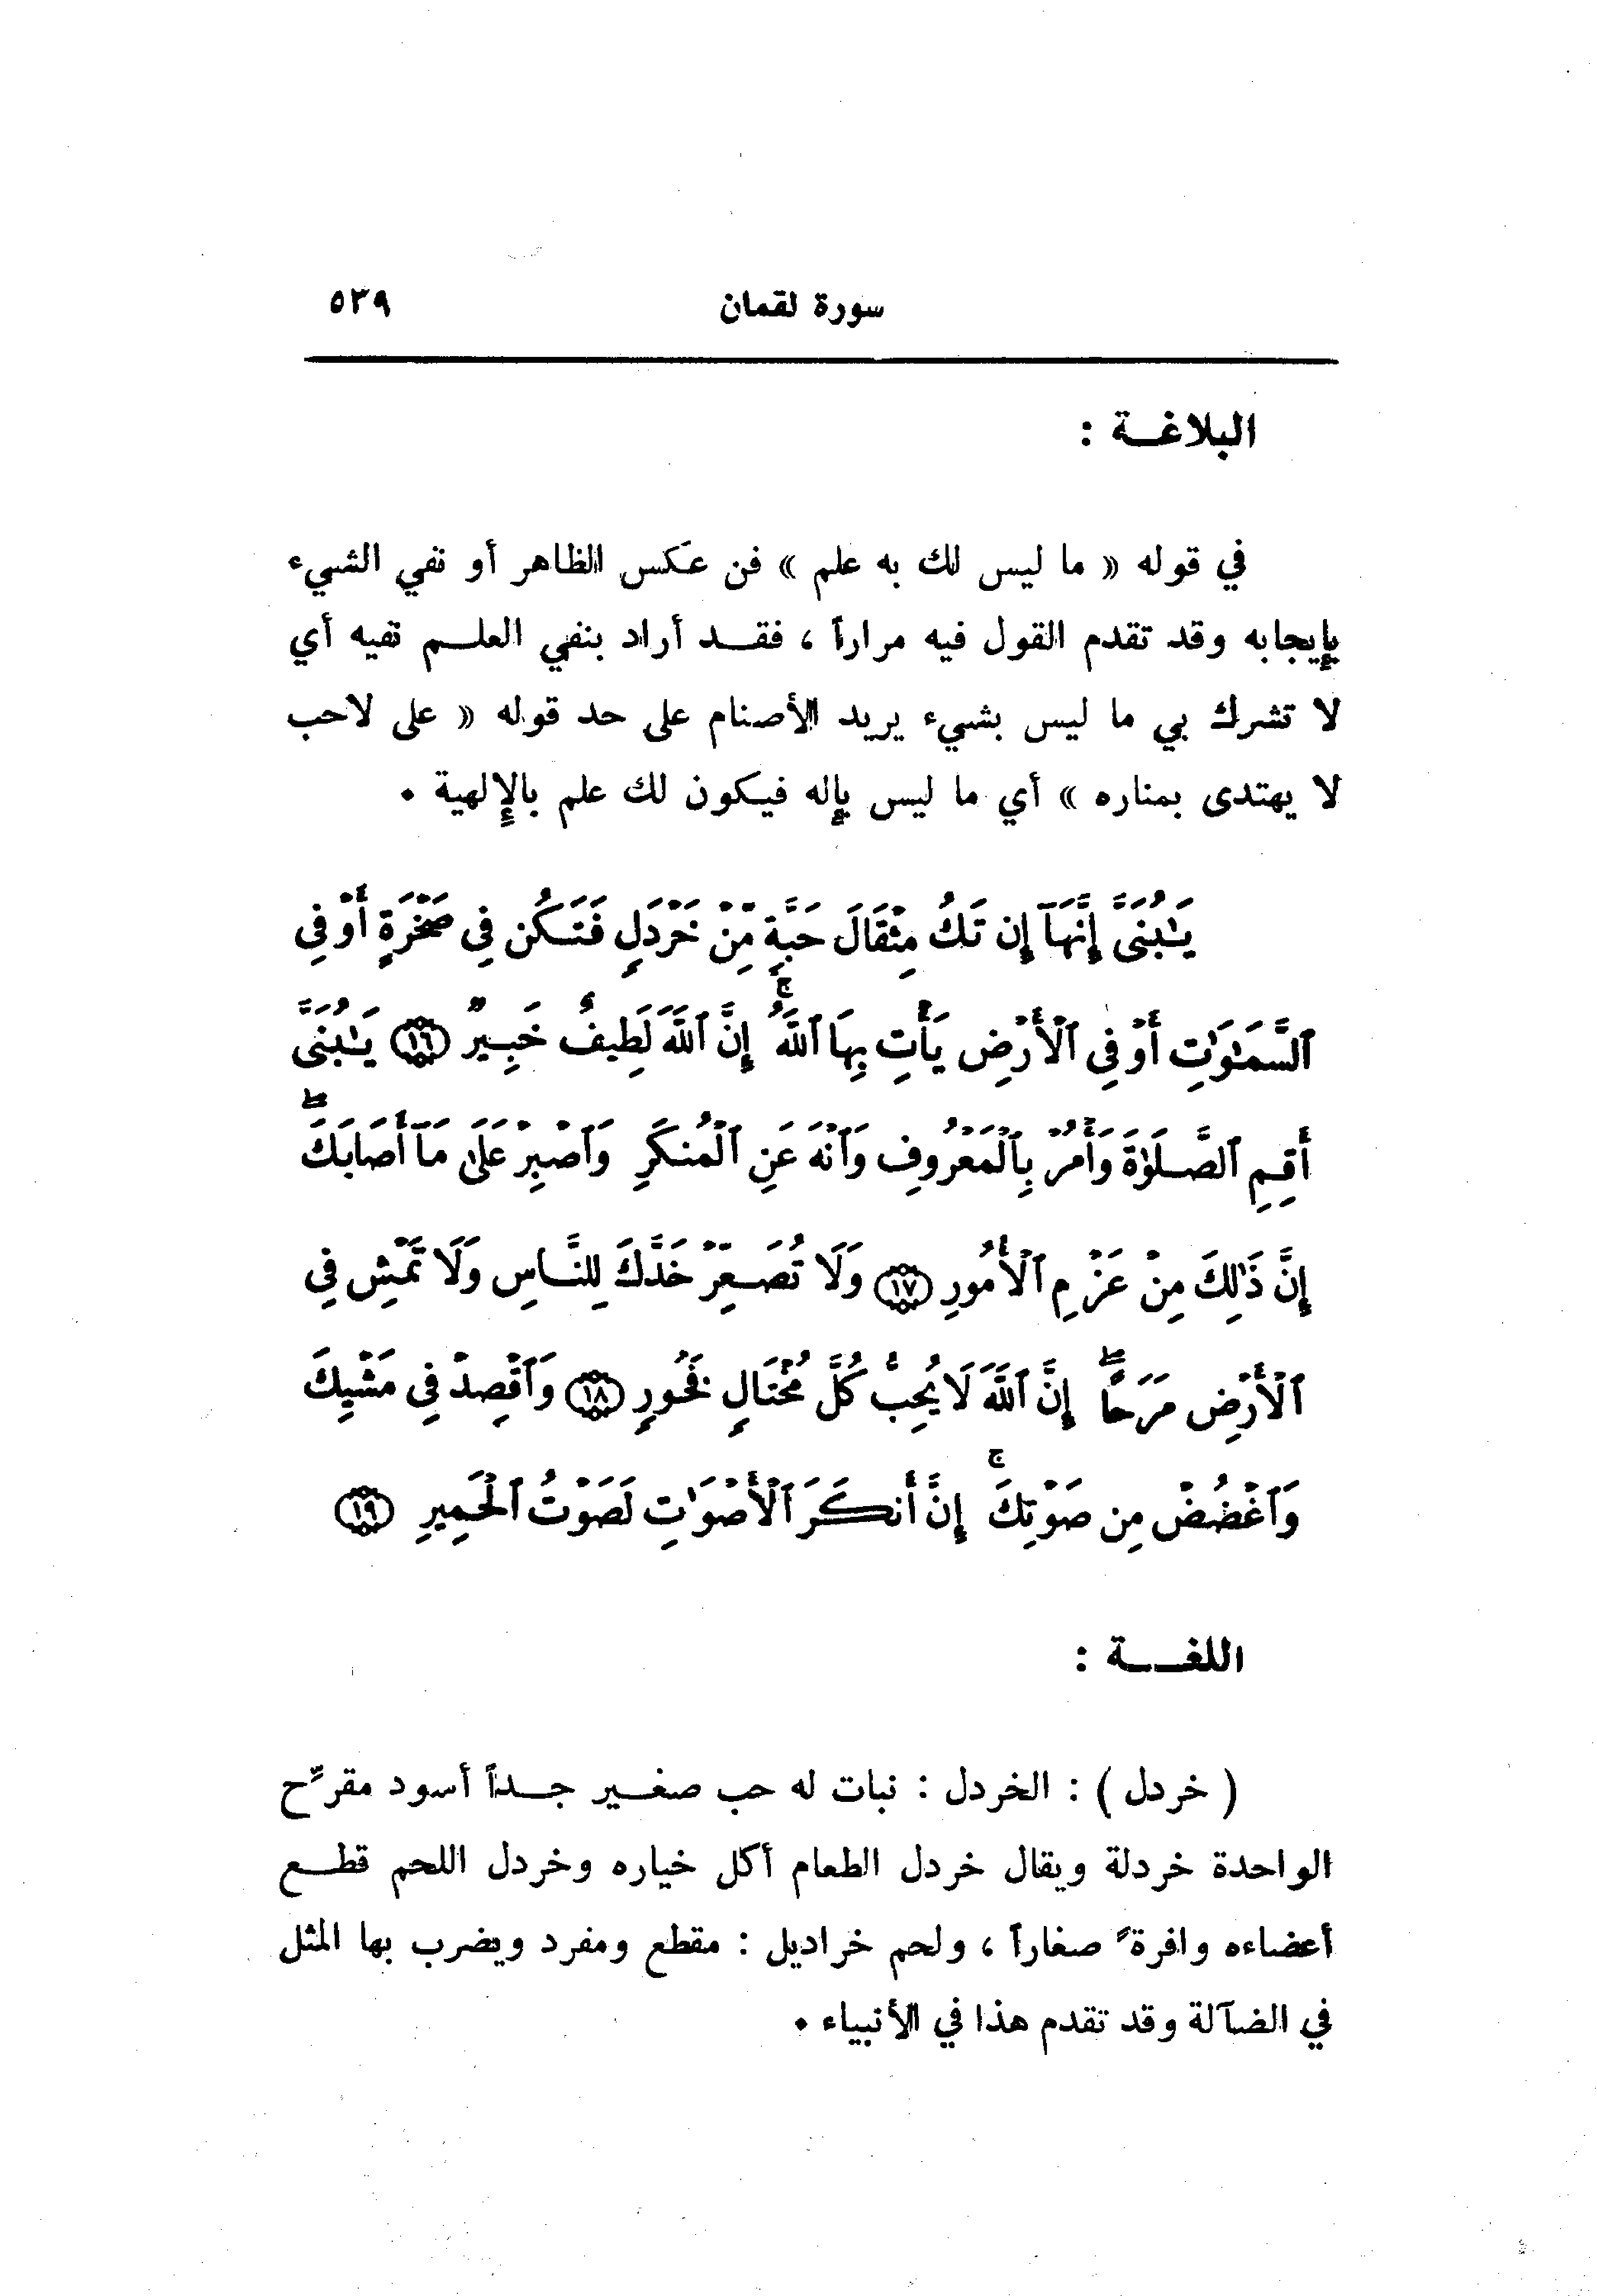 سورة لقمان ٥٣٩
البلاغة :
في قوله « ما ليس لك به علم » فن عكس الظاهر أو نفي الشيء
بإيجابه وقد تقدم القول فيه مراراً ، فقد أراد بنفي العلم نفيه أي
لا تشرك بي ما ليس بشيء يريد الأصنام على حد قوله « على لاحب
لا يهتدى بمناره » أي ما ليس بإله فيكون لك علم بالإلهية .
يَـٰبُنَىَّ إِنَّهَآ إِن تَكُ مِثْقَالَ حَبَّةٍ مِّنْ خَرْدَلٍ فَتَكُن فِى صَخْرَةٍ أَوْ فِى
ٱلسَّمَـٰوَٰتِ أَوْ فِى ٱلْأَرْضِ يَأْتِ بِهَا ٱللَّهُ ۚ إِنَّ ٱللَّهَ لَطِيفٌ خَبِيرٌ ﴿١٦﴾ يَـٰبُنَىَّ
أَقِمِ ٱلصَّلَوٰةَ وَأْمُرْ بِٱلْمَعْرُوفِ وَٱنْهَ عَنِ ٱلْمُنكَرِ وَٱصْبِرْ عَلَىٰ مَآ أَصَابَكَ ۖ
إِنَّ ذَٰلِكَ مِنْ عَزْمِ ٱلْأُمُورِ ﴿١٧﴾ وَلَا تُصَعِّرْ خَدَّكَ لِلنَّاسِ وَلَا تَمْشِ فِى
ٱلْأَرْضِ مَرَحًا ۖ إِنَّ ٱللَّهَ لَا يُحِبُّ كُلَّ مُخْتَالٍ فَخُورٍ ﴿١٨﴾ وَٱقْصِدْ فِى مَشْيِكَ
وَٱغْضُضْ مِن صَوْتِكَ ۚ إِنَّ أَنكَرَ ٱلْأَصْوَٰتِ لَصَوْتُ ٱلْحَمِيرِ ﴿١٩﴾
اللغة :
( خردل ) : الخردل : نبات له حب صغير جداً أسود مقرّح
الواحدة خردلة ويقال خردل الطعام أكل خياره وخردل اللحم قطع
أعضاءه وافرةً صغاراً ، ولحم خراديل : مقطع ومفرد ويضرب بها المثل
في الضآلة وقد تقدم هذا في الأنبياء .